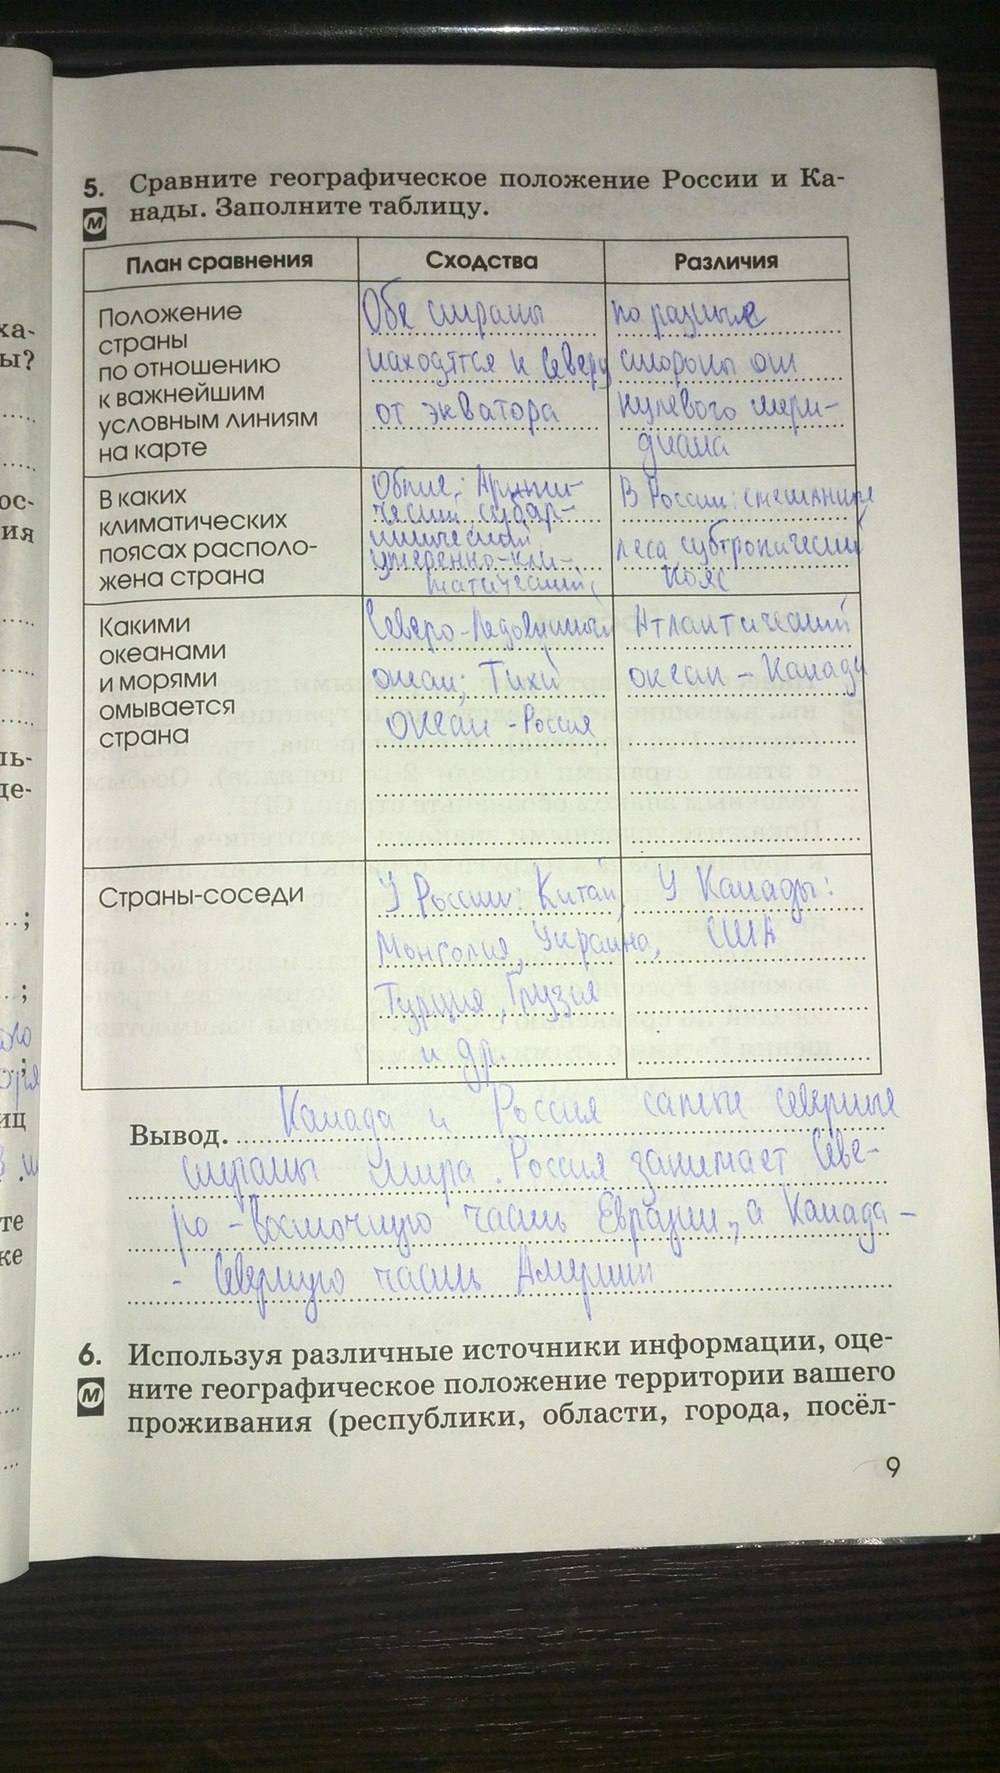 5. Сравните географическое положение России и Ка-
М нады. Заполните таблицу.
План сравнения
Сходства
Различия
Положение
страны
по отношению
к важнейшим
условным линиям
на карте
Обе страны
находятся к северу
от экватора
по разные
стороны от
нулевого мери-
диана
В каких
климатических
поясах располо-
жена страна
Общие: Аркти-
ческий, субар-
ктический
умеренно-кли-
матический
В России: смешанные
леса, субтропический
пояс
Какими
океанами
и морями
омывается
страна
Северо-Ледовитый
океан; Тихий
океан - Россия
Атлантический
океан - Канаду
Страны-соседи
У России: Китай,
Монголия, Украина,
Турция, Грузия
и др.
У Канады:
США
Вывод. Канада и Россия самые северные
страны мира. Россия занимает Севе-
ро-восточную часть Евразии, а Канада -
- Северную часть Америки
6. Используя различные источники информации, оце-
М ните географическое положение территории вашего
проживания (республики, области, города, посёл-
9
ха-
ы?
ос-
ия
ль-
де-
;
;
;
иц
те
ке